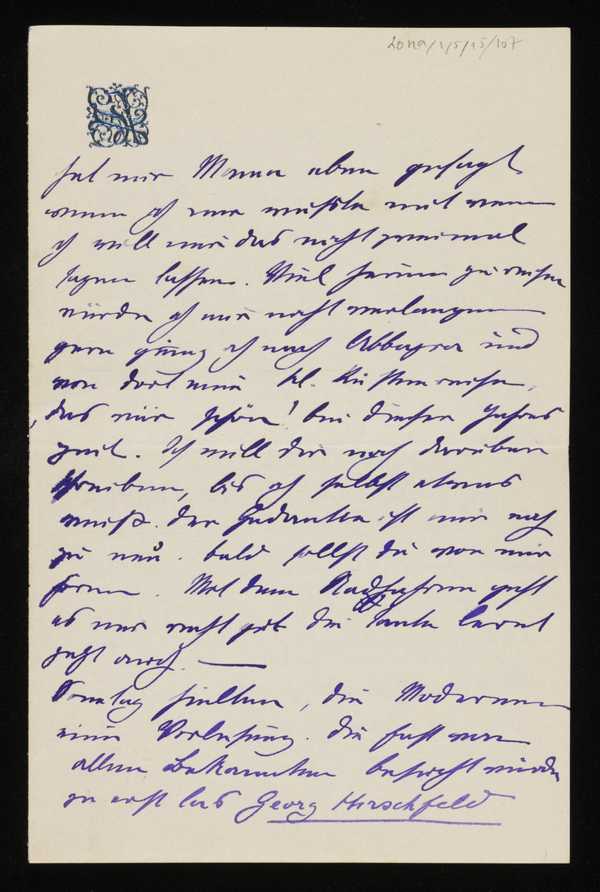 2019/1/5/15/107
hat mir Mama eben gesagt
wenn ich nur wüßte mit wem
ich will mir das nicht zweimal
sagen lassen. Viel herum zu reisen
würde ich mir nicht verlangen
gern ging ich nach Abbazia und
von dort eine kl. Küstenreise,
das wär schön! bei dieser Jahres
zeit. Ich will dir noch darüber
schreiben, bis ich selbst etwas
weiß. Der Gedanke ist mir noch
zu neu. bald sollst du von mir
hören. Mit dem Radfahren geht
es mir recht gut die Tante lernt
jetzt auch. —
Sonntag hielten, die Modernen
eine Vorlesung. die fast von
allen Bekannten besucht wurde
zu erst las Georg Hirschfeld